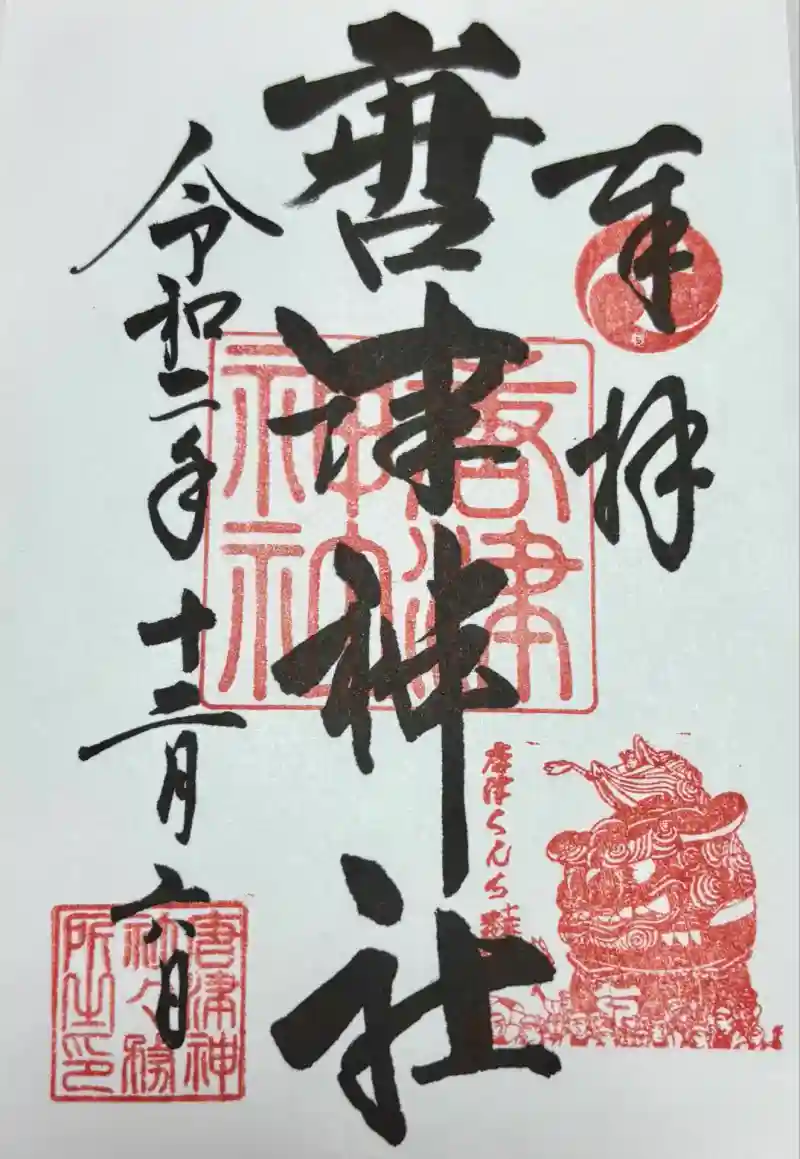 奉拝
唐津神社
令和二年十二月六日
唐津神社
唐津くんち
唐津神社々務所之印